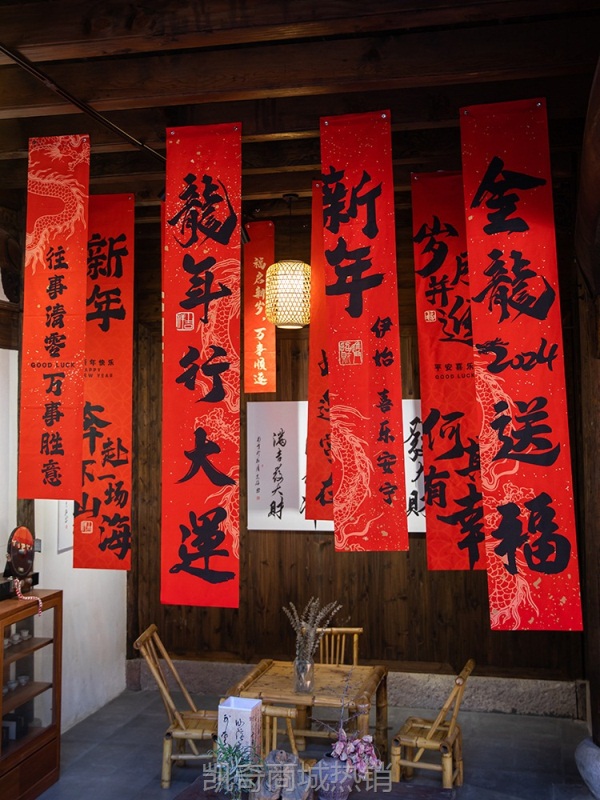 往事清零
GOOD LUCK
万事胜意
新年
新年快乐
HAPPY
NEW YEAR
赴一场海
龍年行大运
福启新岁
万事顺遂
新年
伊始
喜乐安宁
平安喜乐
GOOD LUCK
何其有幸
金龍2024送福
大财
凯奇商城热销